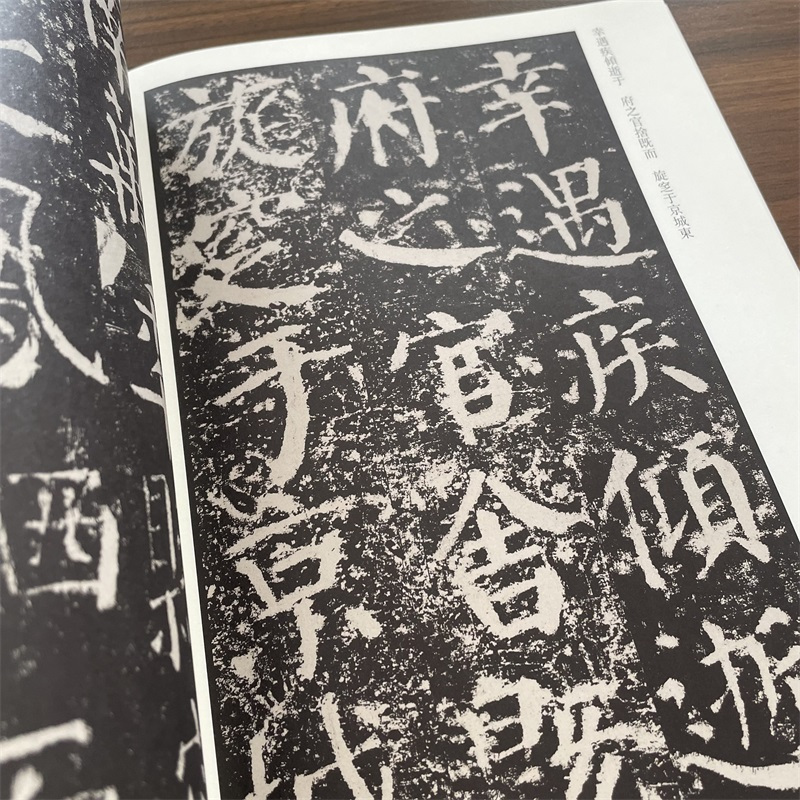 幸遇疾傾逝于　府之官捨既而　旋窆于京城東
幸遇疾傾逝
府之官舍既
旋窆于京城
風